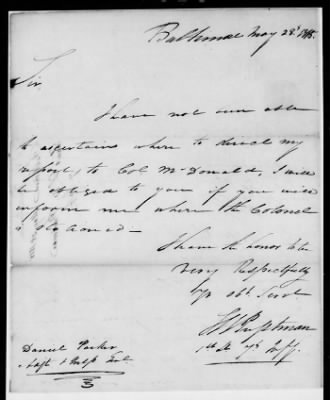 Baltimore May 28th 1815.
Sir,
I have not been able
to ascertain where to direct my
report, to Col McDonald, I will
be obliged to you if you will
inform me where the Colonel
is stationed —
I have the honor to be
very Respectfully
yr obt. Servt
1st Lt 7th Inf
Daniel Parker
Adjt & Insp Genl
3